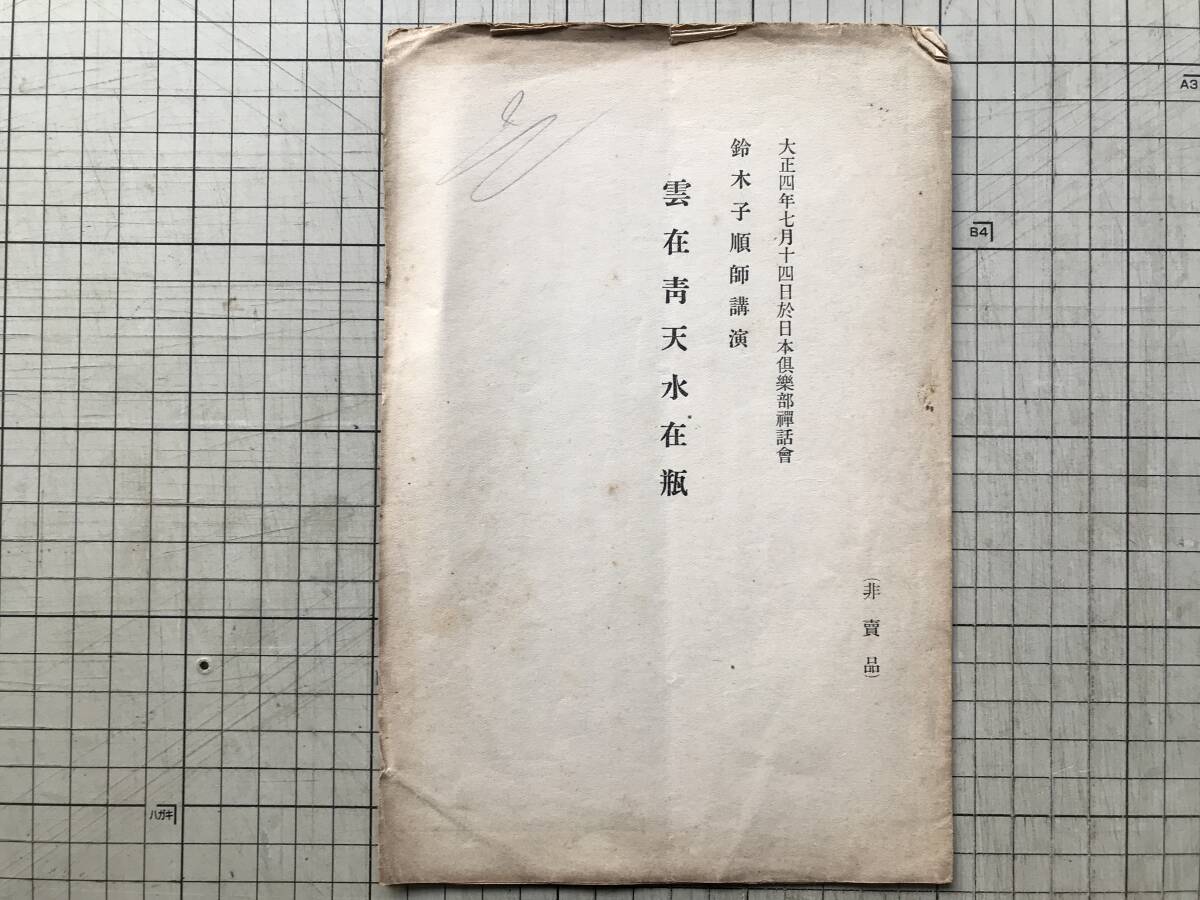 (非賣品)
大正四年七月十四日於日本俱樂部禪話會
鈴木子順師講演
雲在靑天水在瓶
A3
B4
ハガキ